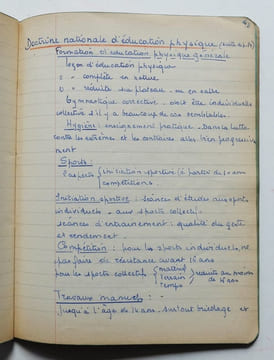 Doctrine nationale d'éducation physique
Formation d'éducation physique générale
leçon d'éducation physique
" " complète en nature
" " réduite sur plateau ou en salle
Gymnastique corrective doit être individuelle
collective s'il y a beaucoup de cas semblables.
Hygiène : enseignement pratique. Dans la lutte
contre les extrêmes et les contraires aller bien progressive
ment
Sports :
2 aspects { initiation sportive (à partir de ans
compétitions.
Initiation sportive : séances d'études aux sports
individuels - aux sports collectifs
séances d'entrainement : qualité du geste
et rendement.
Compétition : pour les sports individuels, ne
pas faire de résistance avant 16 ans
pour les sports collectifs { matériel
terrain
temps } réduits au moins
de 16 ans
Travaux manuels : -
Jusqu'à l'âge de 14 ans, surtout bricolage et